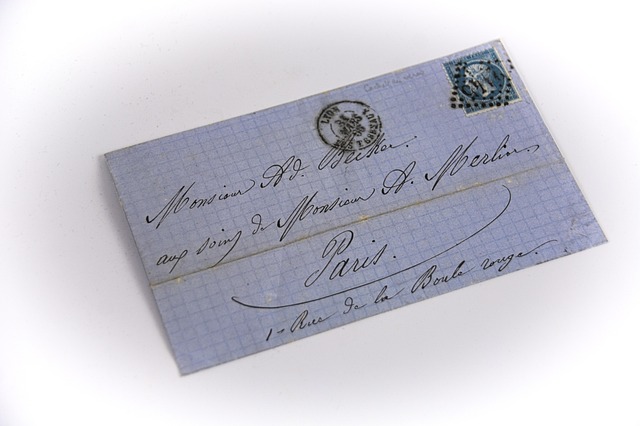 LYON
Monsieur Ad. Becker.
aux soins de Monsieur A. Merlin,
Paris.
1 - Rue de la Boule rouge.